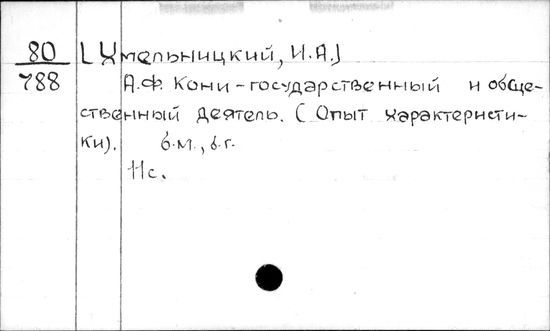 80 [Хмельницкий, И.А.]
788 А.Ф. Кони - государственный и обще-
ственный деятель. (Опыт характеристи-
ки). б.м., б.г.
11с.